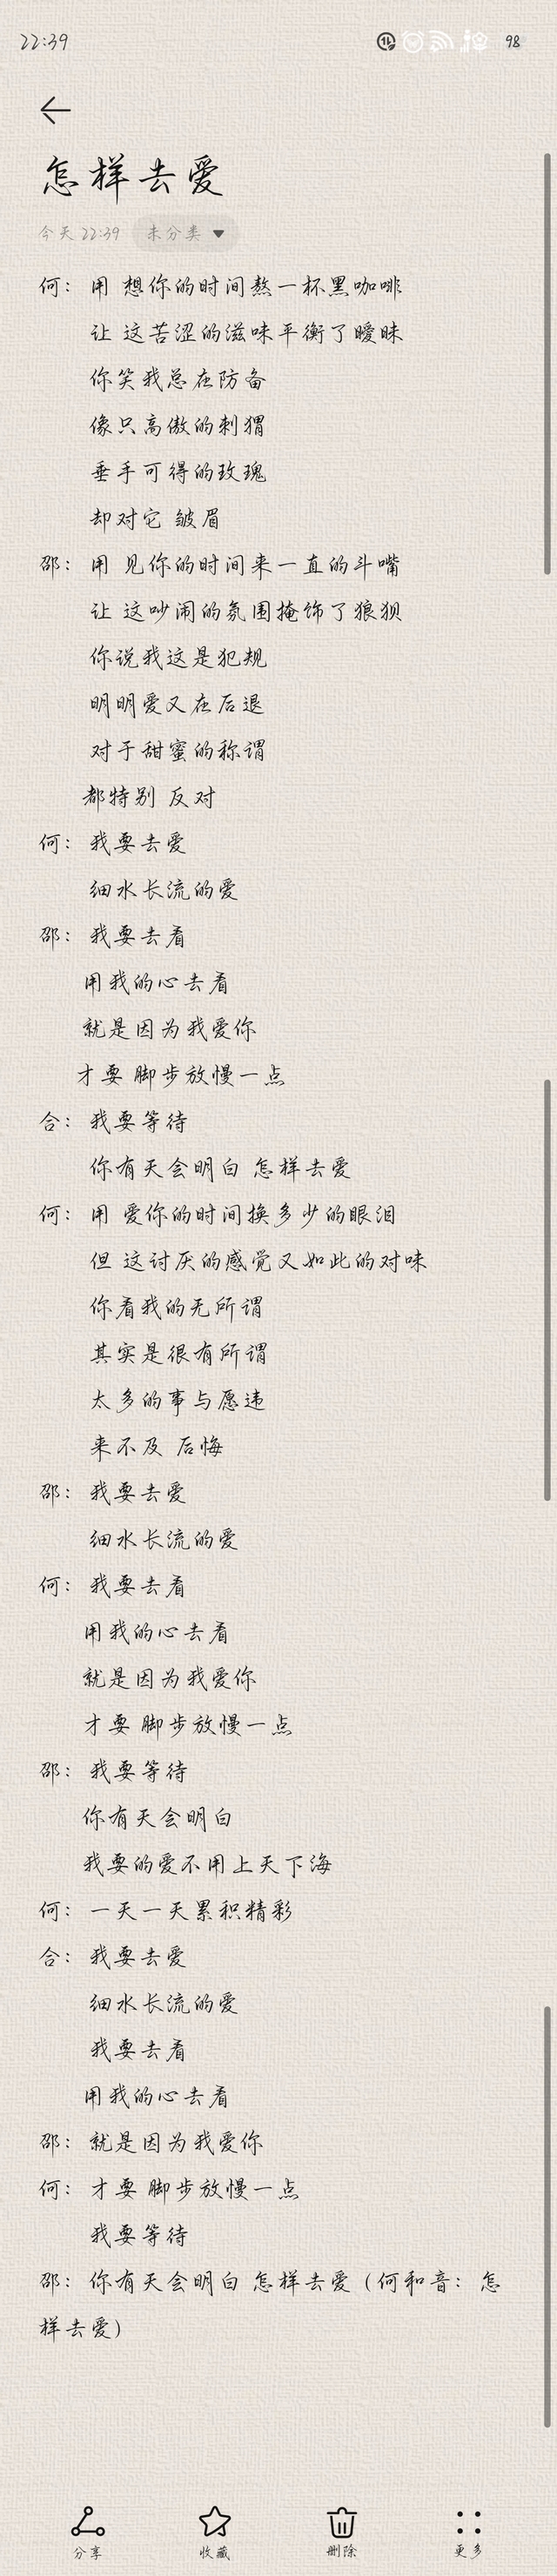 22:39 98
怎样去爱
今天 22:39 未分类
何： 用 想你的时间熬一杯黑咖啡
让 这苦涩的滋味平衡了暧昧
你笑我总在防备
像只高傲的刺猬
垂手可得的玫瑰
却对它 皱眉
邵： 用 见你的时间来一直的斗嘴
让 这吵闹的氛围掩饰了狼狈
你说我这是犯规
明明爱又在后退
对于甜蜜的称谓
都特别 反对
何： 我要去爱
细水长流的爱
邵： 我要去看
用我的心去看
就是因为我爱你
才要 脚步放慢一点
合： 我要等待
你有天会明白 怎样去爱
何： 用 爱你的时间换多少的眼泪
但 这讨厌的感觉又如此的对味
你看我的无所谓
其实是很有所谓
太多的事与愿违
来不及 后悔
邵： 我要去爱
细水长流的爱
何： 我要去看
用我的心去看
就是因为我爱你
才要 脚步放慢一点
邵： 我要等待
你有天会明白
我要的爱不用上天下海
何： 一天一天累积精彩
合： 我要去爱
细水长流的爱
我要去看
用我的心去看
邵： 就是因为我爱你
何： 才要 脚步放慢一点
我要等待
邵： 你有天会明白 怎样去爱（何和音： 怎
样去爱）
分享 收藏 删除 更多